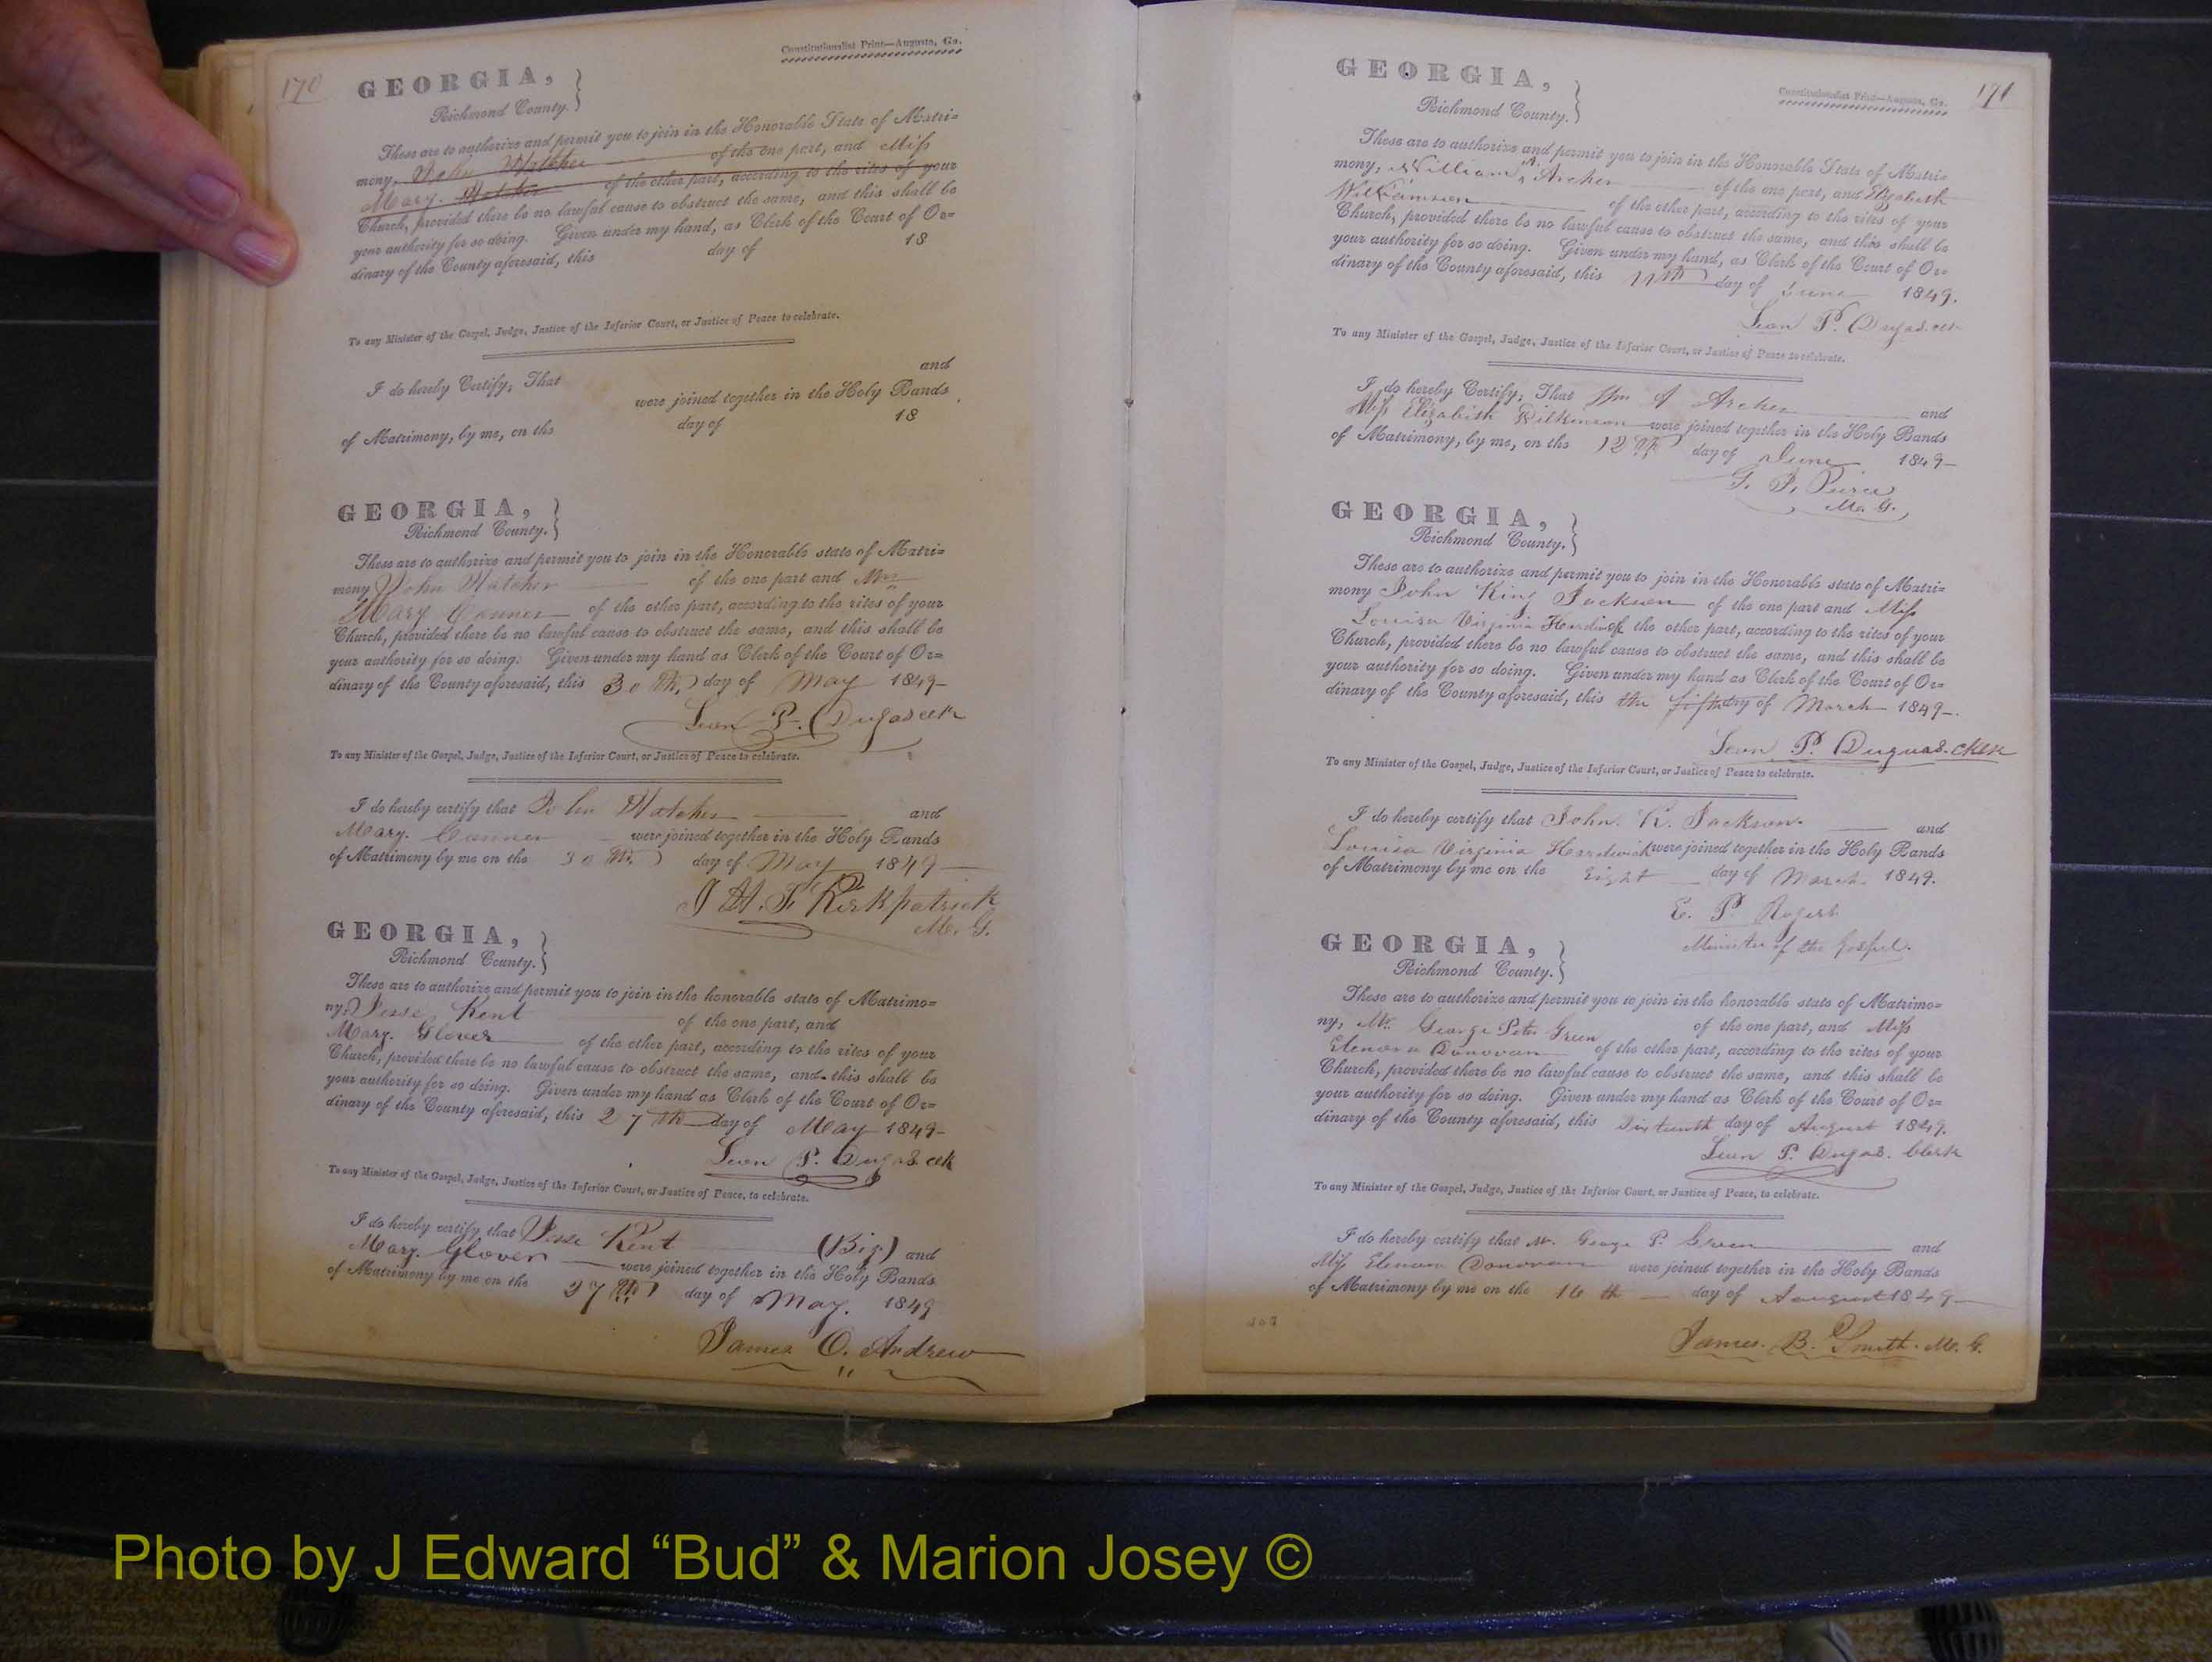 170
Constitutionalist Print—Augusta, Ga.
GEORGIA,
Richmond County.
These are to authorize and permit you to join in the Honorable State of Matri=
mony, John Hatcher of the one part, and Miss
Mary. Hatcher of the other part, according to the rites of your
Church, provided there be no lawful cause to obstruct the same, and this shall be
your authority for so doing. Given under my hand, as Clerk of the Court of Or=
dinary of the County aforesaid, this day of 18
To any Minister of the Gospel, Judge, Justice of the Inferior Court, or Justice of Peace to celebrate.
I do hereby Certify, That and
were joined together in the Holy Bands
of Matrimony, by me, on the day of 18
GEORGIA,
Richmond County.
These are to authorize and permit you to join in the Honorable state of Matri=
mony John Hatcher of the one part and
Mary Conner of the other part, according to the rites of your
Church, provided there be no lawful cause to obstruct the same, and this shall be
your authority for so doing. Given under my hand as Clerk of the Court of Or=
dinary of the County aforesaid, this 30th day of May 1849
Leon P. Dugas clk
To any Minister of the Gospel, Judge, Justice of the Inferior Court, or Justice of Peace to celebrate.
I do hereby certify that John Hatcher and
Mary. Conner were joined together in the Holy Bands
of Matrimony by me on the 30th day of May 1849
J. H. T. Kirkpatrick
M. G.
GEORGIA,
Richmond County.
These are to authorize and permit you to join in the honorable state of Matrimo=
ny, Jesse Kent of the one part, and
Mary. Glover of the other part, according to the rites of your
Church, provided there be no lawful cause to obstruct the same, and this shall be
your authority for so doing. Given under my hand as Clerk of the Court of Or=
dinary of the County aforesaid, this 27th day of May 1849
Leon P. Dugas clk
To any Minister of the Gospel, Judge, Justice of the Inferior Court, or Justice of Peace, to celebrate.
I do hereby certify that Jesse Kent (Big) and
Mary. Glover were joined together in the Holy Bands
of Matrimony by me on the 27th day of May. 1849
James O. Andrew
171
Constitutionalist Print—Augusta, Ga.
GEORGIA,
Richmond County.
These are to authorize and permit you to join in the Honorable State of Matri=
mony, William A. Archer of the one part, and Elizabeth
Wilkinson of the other part, according to the rites of your
Church, provided there be no lawful cause to obstruct the same, and this shall be
your authority for so doing. Given under my hand, as Clerk of the Court of Or=
dinary of the County aforesaid, this 11th day of June 1849.
Leon P. Dugas. clk
To any Minister of the Gospel, Judge, Justice of the Inferior Court, or Justice of Peace to celebrate.
I do hereby Certify, That Wm A Archer and
Miss Elizabeth Wilkinson were joined together in the Holy Bands
of Matrimony, by me, on the 12th day of June 1849
G. F. Pierce
M. G.
GEORGIA,
Richmond County.
These are to authorize and permit you to join in the Honorable state of Matri=
mony John King Jackson of the one part and Miss
Louisa Virginia Hardwick of the other part, according to the rites of your
Church, provided there be no lawful cause to obstruct the same, and this shall be
your authority for so doing. Given under my hand as Clerk of the Court of Or=
dinary of the County aforesaid, this the fifth day of March 1849.
Leon P. Duguas. Clerk
To any Minister of the Gospel, Judge, Justice of the Inferior Court, or Justice of Peace to celebrate.
I do hereby certify that John. K. Jackson. and
Louisa Virginia Hardwick were joined together in the Holy Bands
of Matrimony by me on the Eight day of March 1849.
E. P. Rogers
Minister of the Gospel.
GEORGIA,
Richmond County.
These are to authorize and permit you to join in the honorable state of Matrimo=
ny, Mr. George Peter Green of the one part, and Miss
Elenora Donovan of the other part, according to the rites of your
Church, provided there be no lawful cause to obstruct the same, and this shall be
your authority for so doing. Given under my hand as Clerk of the Court of Or=
dinary of the County aforesaid, this Sixteenth day of August 1849.
Leon P. Dugas. Clerk
To any Minister of the Gospel, Judge, Justice of the Inferior Court, or Justice of Peace, to celebrate.
I do hereby certify that Mr. George P. Green and
Miss Elenora Donovan were joined together in the Holy Bands
of Matrimony by me on the 16 th day of August 1849
James. B. Smith. M. G.
Photo by J Edward “Bud” & Marion Josey ©